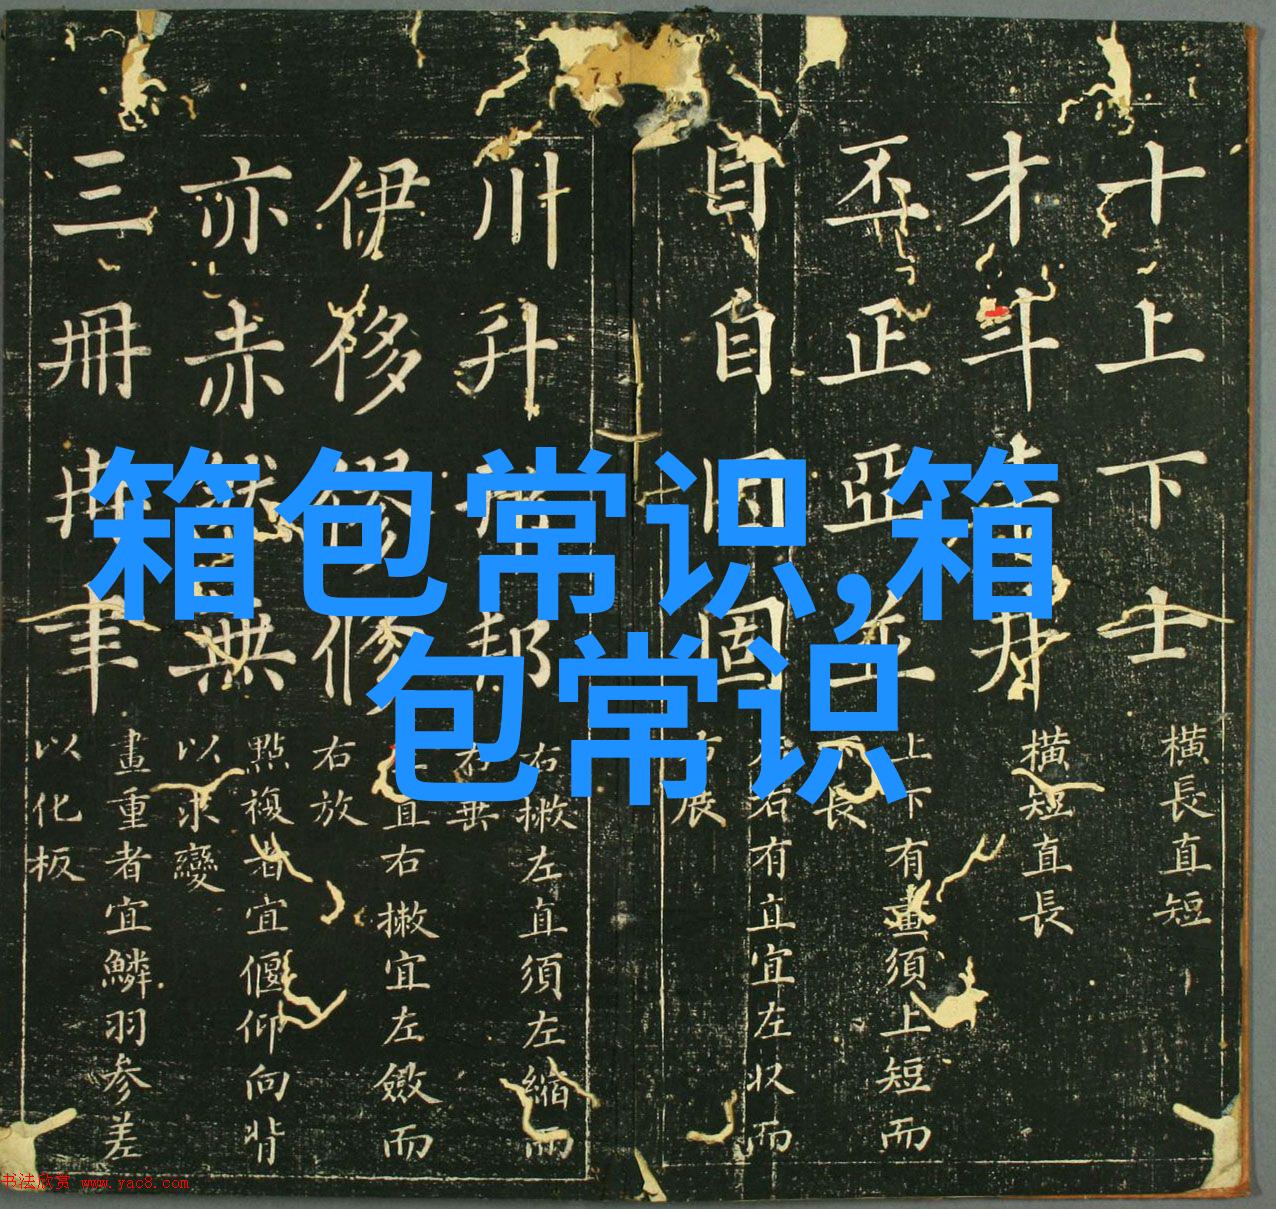 箱包常识,箱
包常识
十上下士
横長直短
才斗
横短直長
丕正亞並
上下有畫須上短而
長
自自固
右有直宜左收而
右展
川升邦
右撇左直須左縮而
右垂
伊侈修
直右撇宜左斂而
右放
亦赤無
點複者宜偃仰向背
以求變
三冊聿
畫重者宜鱗羽参差
以化板
书法欣赏 www.yac8.com